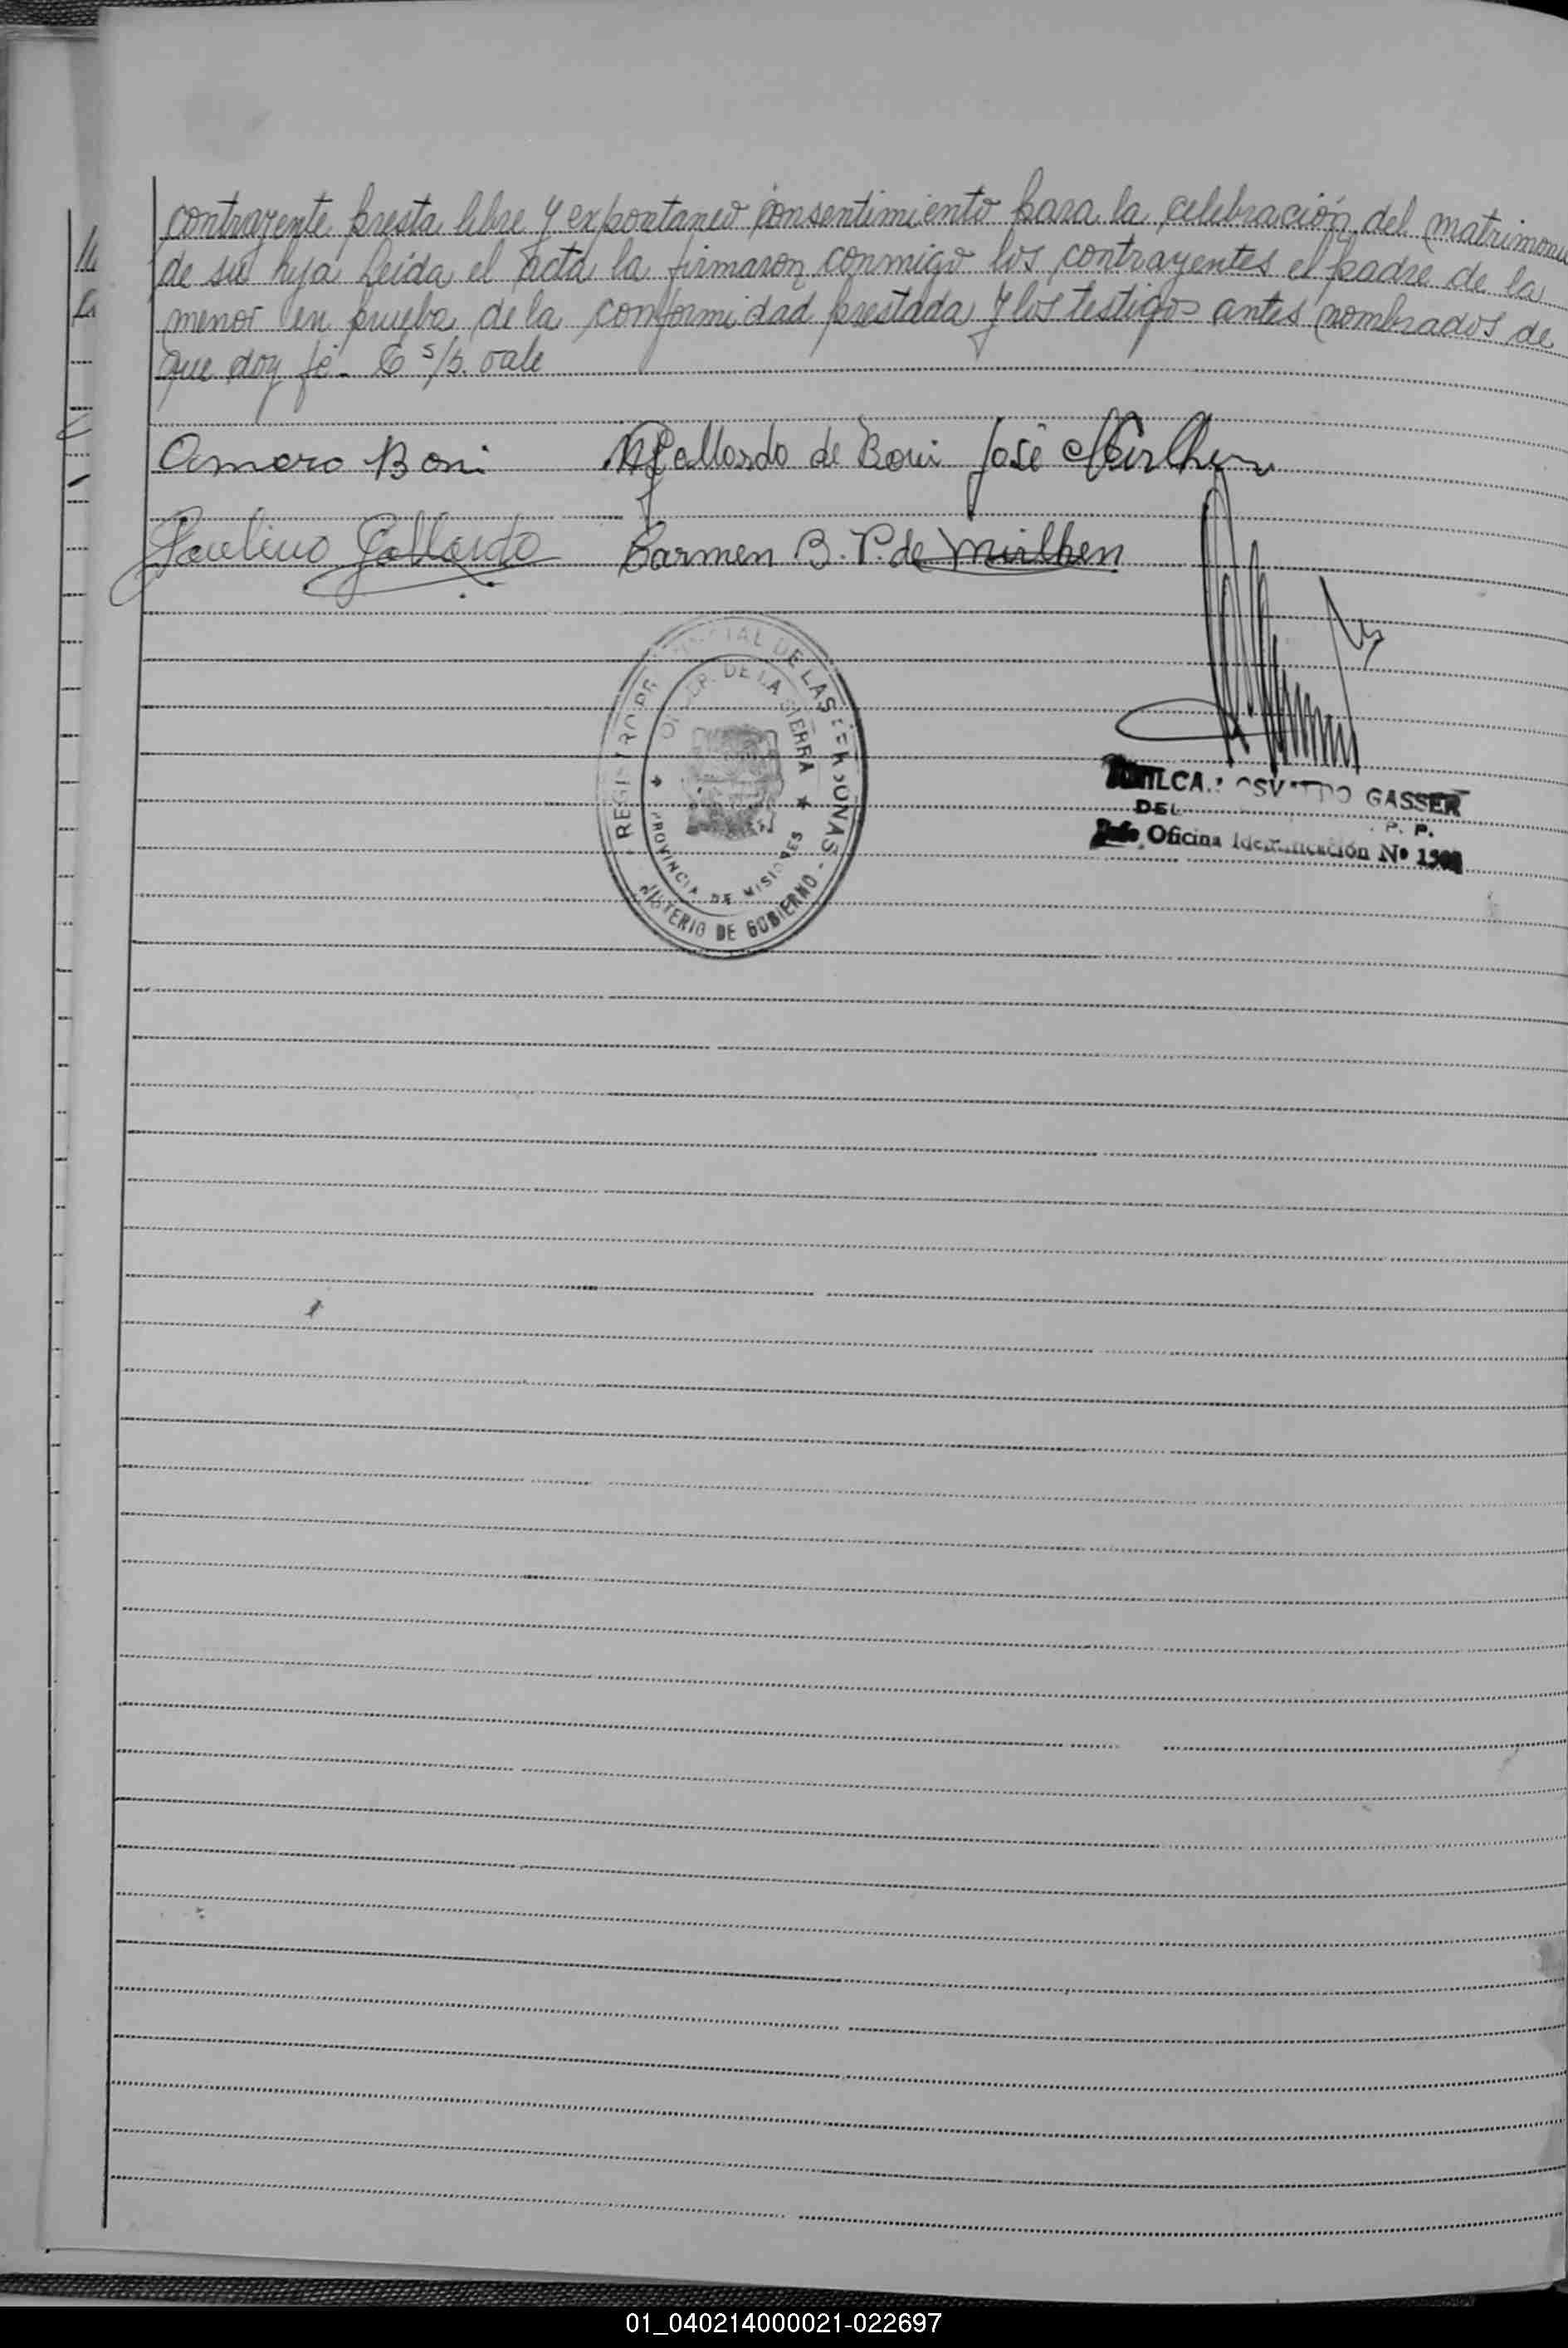 contrayente presta libre y expontaneo consentimiento para la celebración del matrimonio
de su hija Leida el acta la firmaron conmigo los contrayentes el padre de la
menor en prueba de la conformidad prestada y los testigos antes nombrados de
que doy fé.- E s/b. vale
Amaro Boni
Gallardo de Boni
José Meirlhen
Paulino Gallardo
Carmen B. P. de Meirlhen
REGISTRO PROVINCIAL DE LAS PERSONAS -
MINISTERIO DE GOBIERNO
DE LA SIERRA
PROVINCIA DE MISIONES
GASSER
DEL
P. P.
Jefe Oficina Identificación Nº
01_040214000021-022697